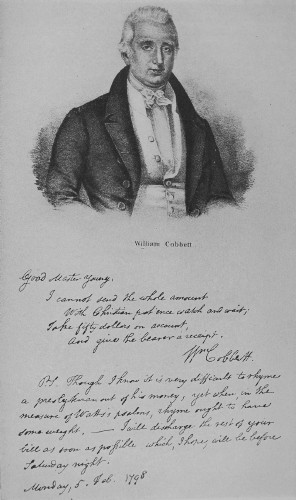 William Cobbett
Good Master Young,
I cannot send the whole amount
With Christian patience watch and wait;
Take fifty dollars on account,
And give the bearer a receipt.
Wm Cobbett.
P.S. Though I know it is very difficult to rhyme
a presbyterian out of his money, yet when, in the
measure of Watts's psalms, rhyme ought to have
some weight. — I will discharge the rest of your
bill as soon as possible which, I hope, will be before
Saturday night.
Monday, 5. Feb. 1798